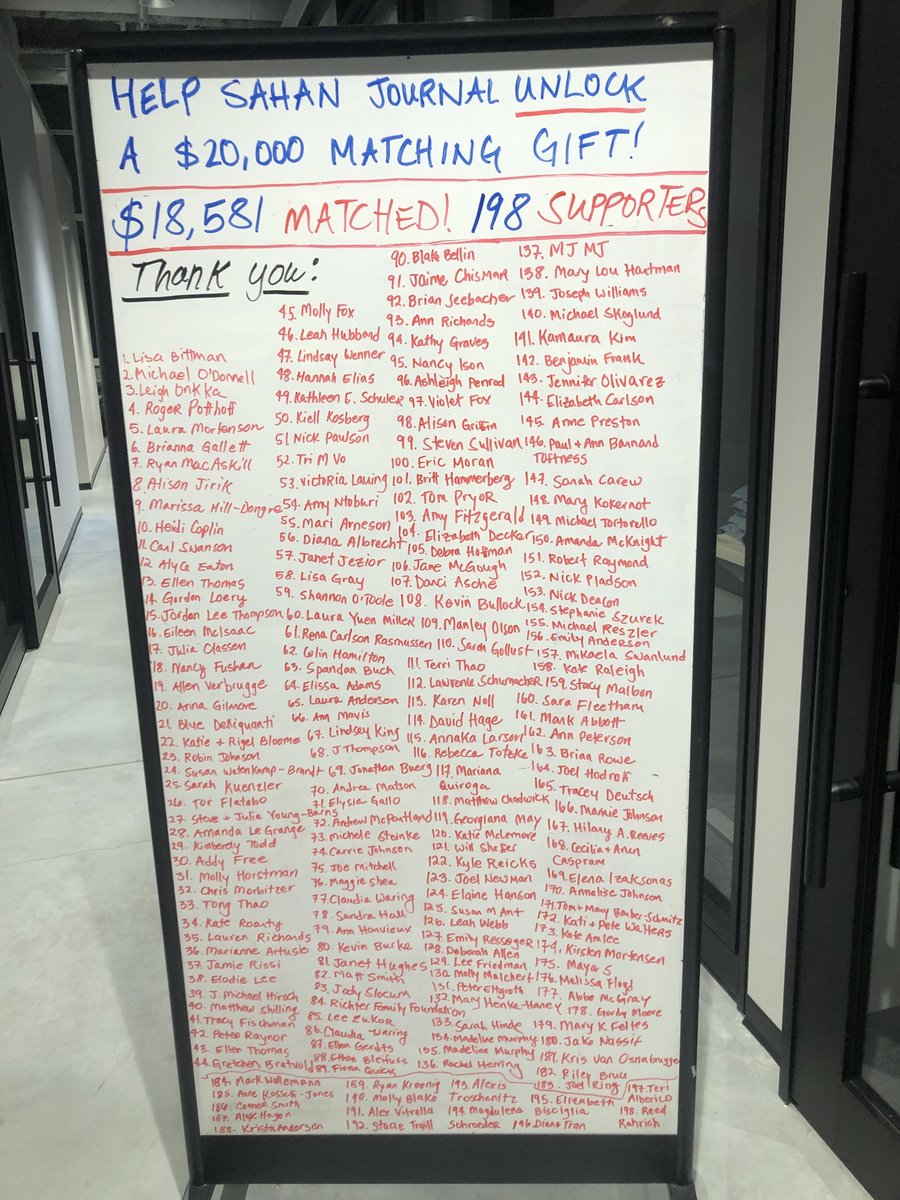 HELP SAHAN JOURNAL UNLOCK
A $20,000 MATCHING GIFT!
$18,581 MATCHED! 198 SUPPORTERS
Thank you:
1. Lisa Bittman
2. Michael O'Donnell
3. Leigh Onkka
4. Roger Potthoff
5. Laura Mortenson
6. Brianna Gallett
7. Ryan MacAskill
8. Alison Jirik
9. Marissa Hill-Dongre
10. Heidi Coplin
11. Carl Swanson
12. Alyce Eaton
13. Ellen Thomas
14. Gordon Loery
15. Jordan Lee Thompson
16. Eileen McIsaac
17. Julia Classen
18. Nancy Fushan
19. Allen Verbrugge
20. Anna Gilmore
21. Blue DeliQuanti
22. Katie + Rigel Bloome
23. Robin Johnson
24. Susan Wetenkamp-Brandt
25. Sarah Kuenzler
26. Tor Flatebo
27. Steve + Julie Young-Burns
28. Amanda Le Grange
29. Kimberly Todd
30. Addy Free
31. Molly Horstman
32. Chris Morbitzer
33. Tong Thao
34. Kate Roarty
35. Lauren Richards
36. Marianne Artusio
37. Jamie Rissi
38. Elodie Lee
39. J. Michael Hirsch
40. Matthew Shilling
41. Tracy Fischman
42. Peter Raynor
43. Ellen Thomas
44. Gretchen Bratvold
45. Molly Fox
46. Leah Hubbard
47. Lindsay Wenner
48. Hannah Elias
49. Kathleen E. Schuler
50. Kjell Kosberg
51 Nick Paulson
52. Tri M Vo
53. Victoria Lauing
54. Amy Ntoburi
55. Mari Arneson
56. Diana Albrecht
57. Janet Jezior
58. Lisa Gray
59. Shannon O'Toole
60. Laura Yuen Miller
61. Rena Carlson Rasmussen
62. Colin Hamilton
63. Spandan Buch
64. Elissa Adams
65. Laura Andersen
66. Ann Mavis
67. Lindsey King
68. J Thompson
69. Jonathan Buerg
70. Andrea Matson
71. Elysia Gallo
72. Andrew McPartland
73. michele Steinke
74. Carrie Johnson
75. Joe mitchell
76. Maggie Shea
77. Claudia Waring
78. Sandra Hall
79. Ann Hanvieux
80. Kevin Burke
81. Janet Hughes
82. Matt Smith
83. Jody Slocum
84. Richter Family Foundation
85. Lee Zukor
86. Claudia Waring
87. Ellen Gerdts
88. Ethan Bleifuss
89. Fiona Quick
90. Blake Bellin
91. Jaime Chismar
92. Brian Seebacher
93. Ann Richards
94. Kathy Graves
95. Nancy Ison
96. Ashleigh Penrod
97. Violet Fox
98. Alison Griffin
99. Steven Sullivan
100. Eric Moran
101. Britt Hammerberg
102. Tom Pryor
103. Amy Fitzgerald
104. Elizabeth Decker
105. Debra Hoffman
106. Jane McGough
107. Darci Asche
108. Kevin Bullock
109. Manley Olson
110. Sarah Gollust
111. Terri Thao
112. Lawrence Schumacher
113. Karen Noll
114. David Hage
115. Annaka Larson
116. Rebecca Toteke
117. Mariana
Quiroga
118. Matthew Chadwick
119. Georgiana May
120. Katie McLemore
121. Will Shafer
122. Kyle Reicks
123. Joel Newman
124. Elaine Hanson
125. Susan M Ant
126. Leah Webb
127. Emily Resseger
128. Deborah Allen
129. Lee Friedman
130. Molly Malchert
131. Peter Etgroth
132. Mary Henke-Haney
133. Sarah Hinde
134. Madeline Murphy
135. Madeline Murphy
136. Rachel Herring
137. MJ MJ
138. Mary Lou Hartman
139. Joseph Williams
140. Michael Skoglund
141. Kamaura Kim
142. Benjamin Frank
143. Jennifer Olivarez
144. Elizabeth Carlson
145. Anne Preston
146. Paul + Ann Bannard
Toftness
147. Sarah Carew
148. Mary Kokernot
149. Michael Tortorello
150. Amanda McKnight
151. Robert Raymond
152. Nick Pladson
153. Nick Deacon
154. Stephanie Szurek
155. Michael Reszler
156. Emily Anderson
157. Mikaela Swanlund
158. Kate Raleigh
159. Stacy Malbon
160. Sara Fleetham
161. Mark Abbott
162. Ann Peterson
163. Brian Rowe
164. Joel Hodroff
165. Tracey Deutsch
166. Mamie Johnson
167. Hilary A. Reeves
168. Cecilia + Arun
Caspram
169. Elena Izaksonas
170. Annelise Johnson
171. Tom + Mary Barber-Schmitz
172. Kati + Pete Walters
173. Kate Amlee
174. Kirsten Mortensen
175. Maya S
176. Melissa Floyd
177. Abbe McGray
178. Gordy Moore
179. Mary K Feltes
180. Jake Nassif
181. Kris Van Osnabrugge
182. Riley Bruce
183. Joel Ring
184. Mark Wollemann
185. Anne Hossek-Jones
186. Conner Smith
187. Alex Hagen
188. Krista Anderson
189. Ryan Kroenig
190. Molly Blake
191. Alex Vitrella
192. Stacie Traill
193. Alexis
Troschenitz
194. Magdalena
Schroeder
195. Elizabeth
Bisciglia
196. Diana Tran
197. Teri
Alberico
198. Reed
Rohrich